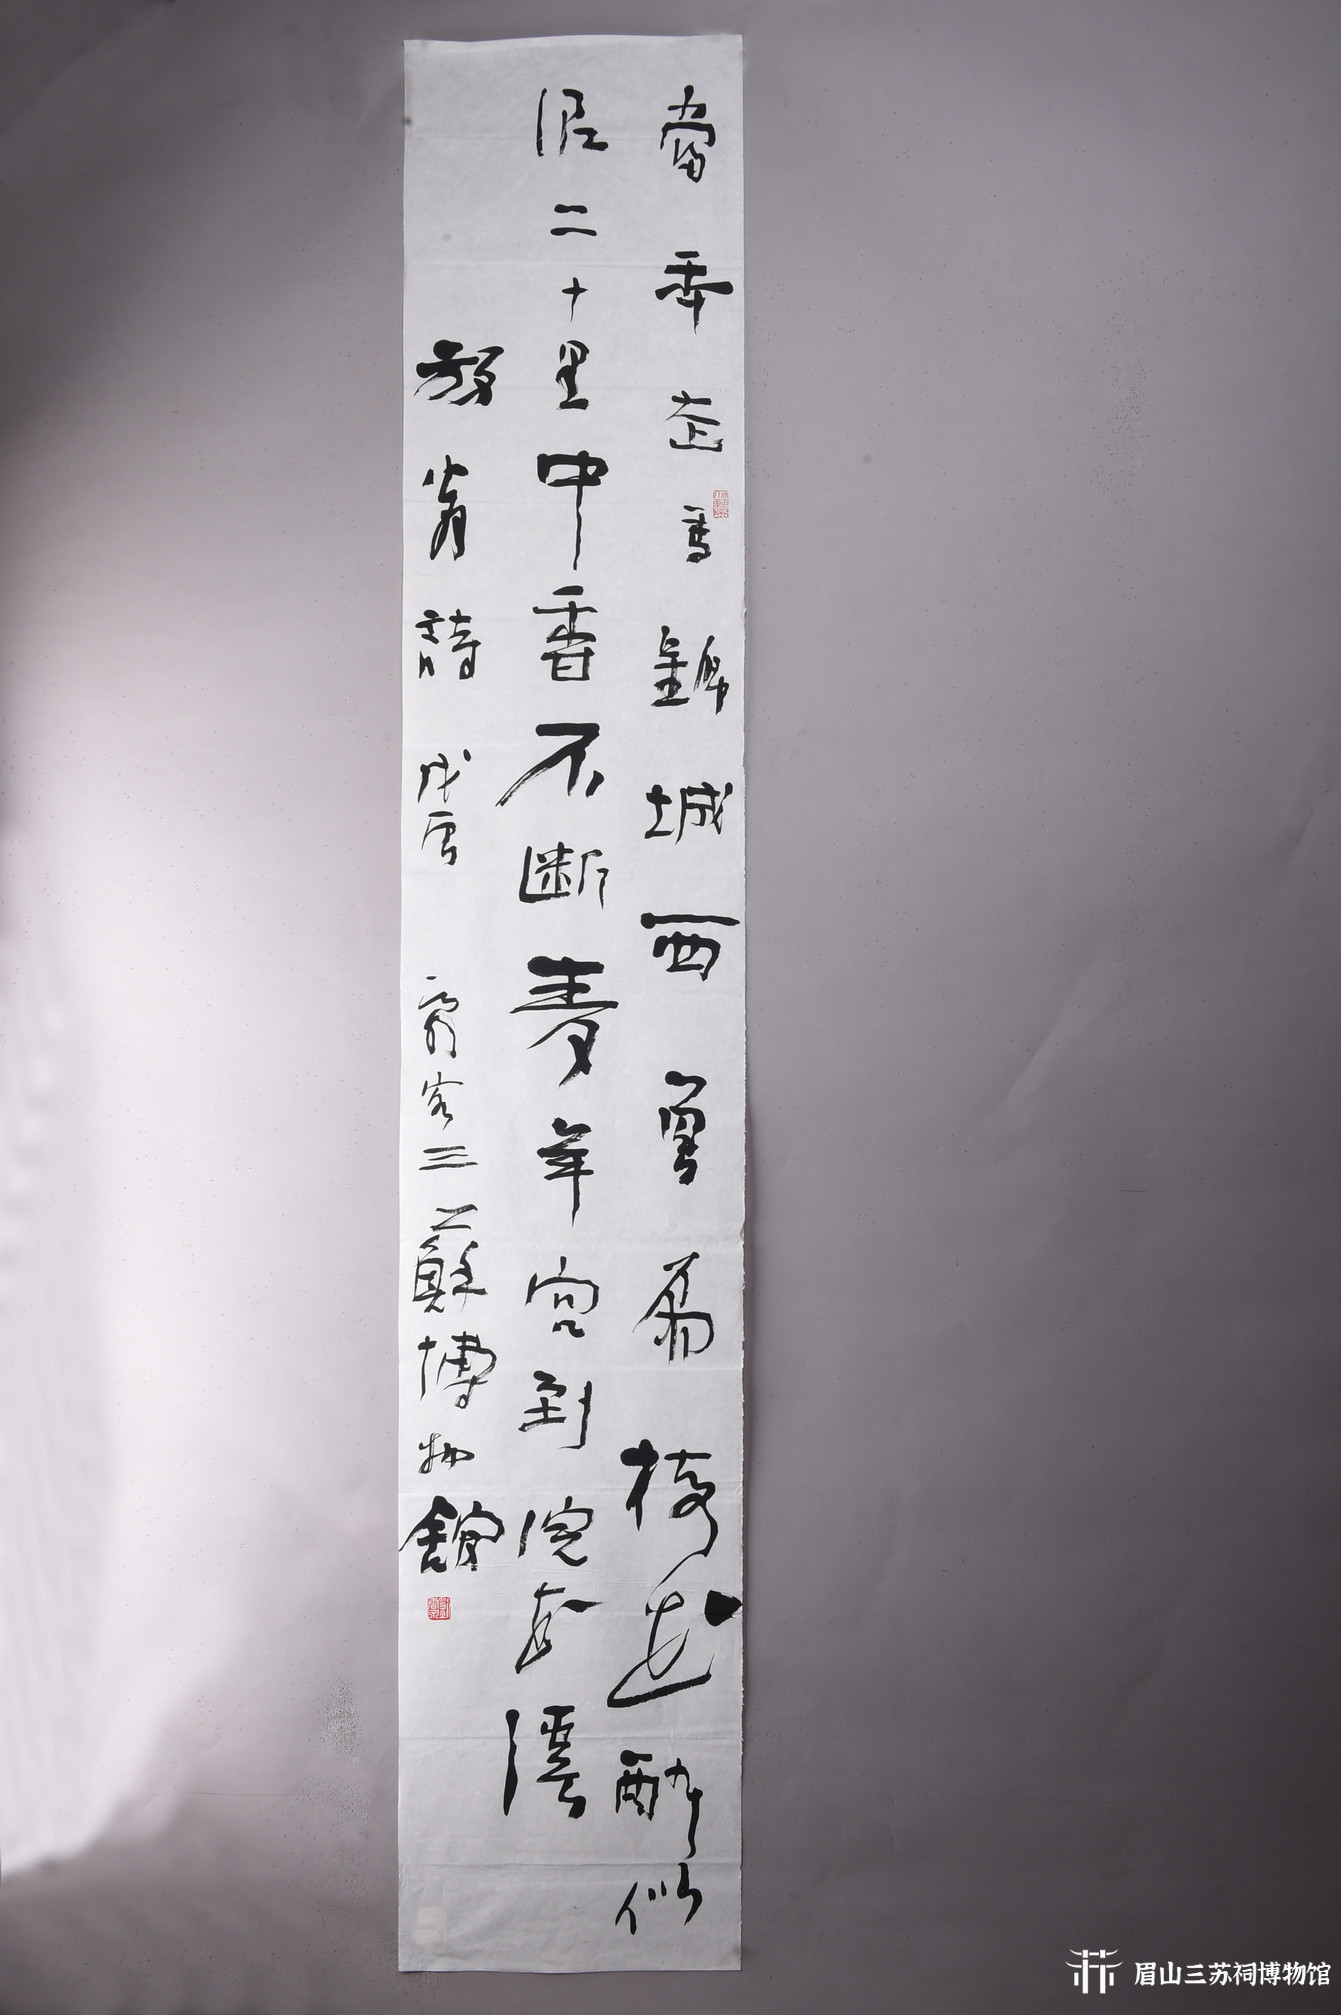 當秊走馬錦城西曾為梅花醉似
泥二十里中香不断青羊宫到浣花溪
放翁詩 戊 客三蘇博物館
眉山三苏祠博物馆